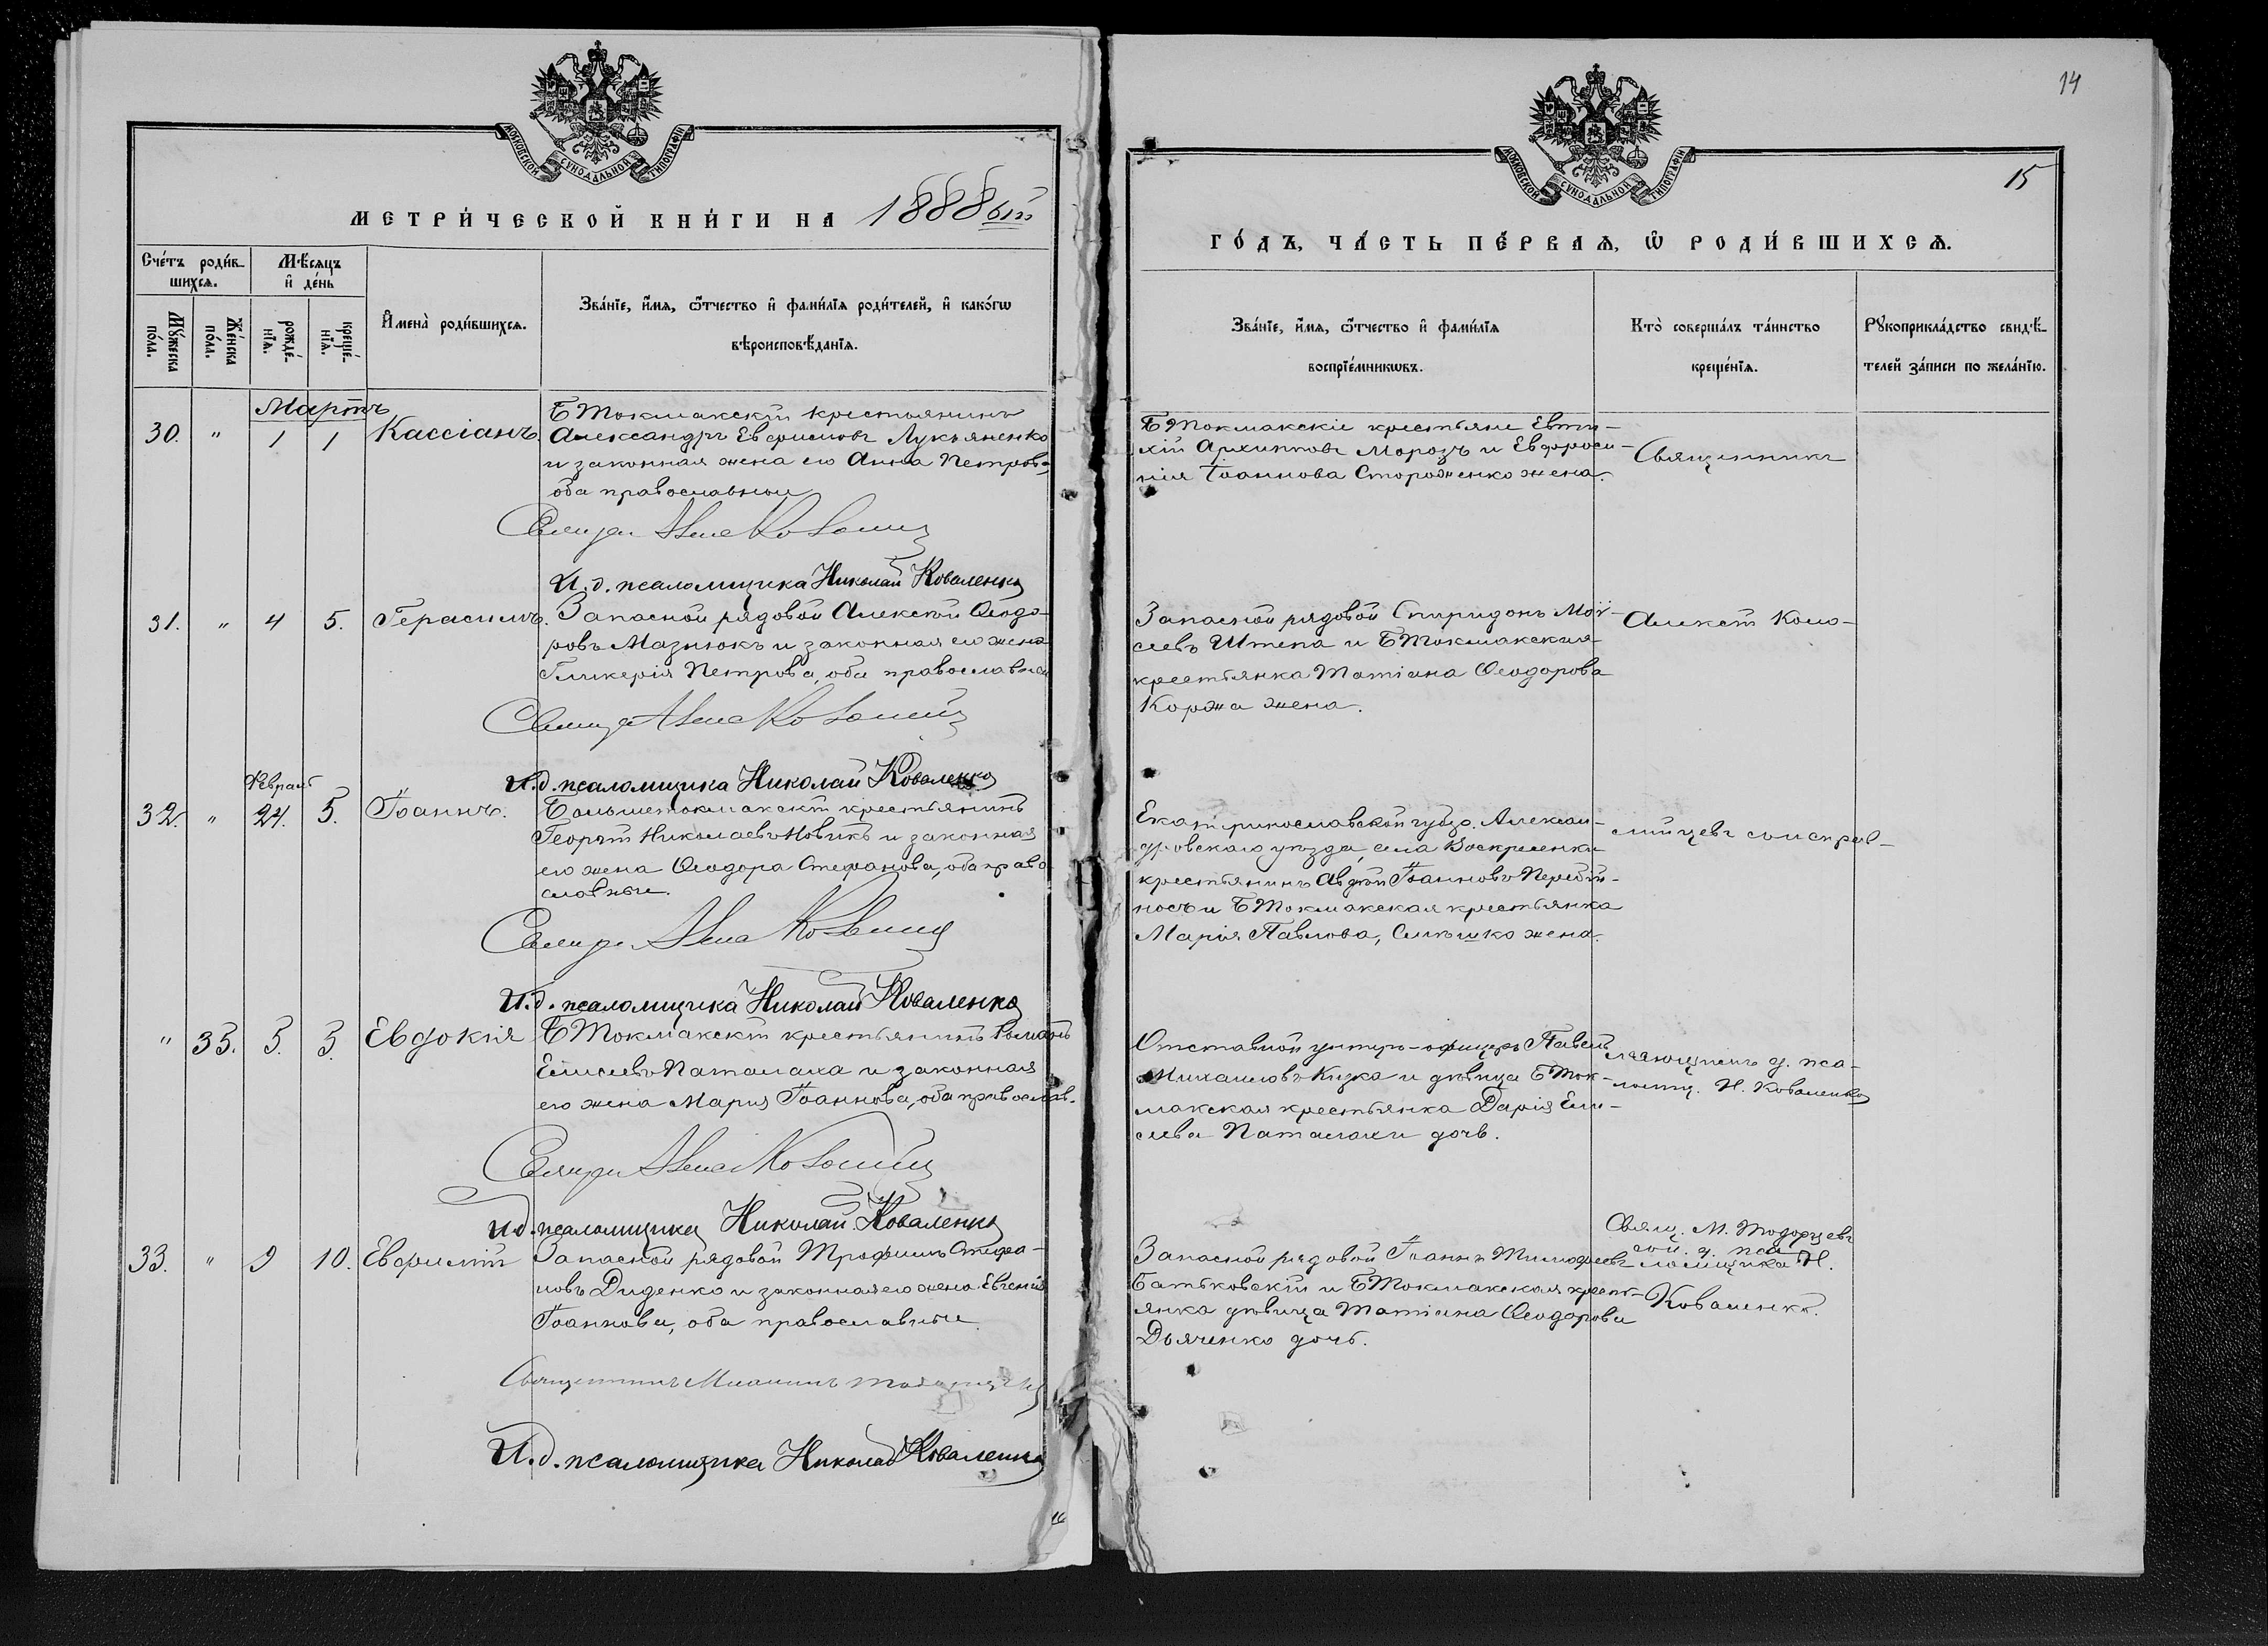 МОСКОВСКОЙ СУНОДАЛЬНОЙ ТИПОГРАФІИ
МЕТРИ́ЧЕСКОЙ КНИ́ГИ НА 1888ый
Сче́тъ роди́в-
шихсѧ.
Мѣ́сѧцъ
и҆ де́нь
Мꙋ́жеска
по́ла.
Же́нска
по́ла.
рожде́-
нїѧ.
креще́-
нїѧ.
И҆мена̀ роди́вшихсѧ.
Зва́нїе, и҆́мѧ, ѻ҆́тчество и҆ фами́лїѧ роди́телей, и҆ како́гѡ
вѣроисповѣ́данїѧ.
Мартъ
30. " 1 1 Кассіанъ.
Б Токмакскій крестьянинъ
Александръ Евфимовъ Лукьяненко
и законная жена его Анна Петрова,
оба православные
И. д. псаломщика Николай Коваленко
31. " 4 5. Герасимъ.
Запасной рядовой Алексѣй Ѳеодо-
ровъ Мазнюкъ и законная его жена
Гликерія Петрова, оба православные
И. д. псаломщика Николай Коваленко
Февраль
32. " 24. 5. Іоаннъ.
Большетокмакскій крестьянинъ
Георгій Николаевъ Новикъ и законная
его жена Ѳеодора Стефанова, оба право
славные.
И. д. псаломщика Николай Коваленко
" 33. 5. 5. Евдокія
Б Токмакскій крестьянинъ Романъ
Елисеевъ Паталаха и законная
его жена Марія Іоаннова, оба православ.
И. д. псаломщика Николай Коваленко
33. " 9 10. Евфимій
Запасной рядовой Трофимъ Стефа-
новъ Диденко и законная его жена Евгенія
Іоаннова, оба православные.
Священникъ
И. д. псаломщика Николай Коваленко
16
14
15
МОСКОВСКОЙ СУНОДАЛЬНОЙ ТИПОГРАФІИ
ГО́ДЪ, ЧА́СТЬ ПЕ́РВАѦ, Ѡ҆ РОДИ́ВШИХСѦ.
Зва́нїе, и҆́мѧ, ѻ҆́тчество и҆ фами́лїѧ
воспрїе́мникѡвъ.
Кто̀ соверша́лъ та́инство
креще́нїѧ.
Рꙋкоприкла́дство свидѣ́-
телей за́писи по жела́нїю.
Б Токмакскіе крестьяне Евти-
хій Архиповъ Морозъ и Евфроси-
нія Іоаннова Стороженко жена.
Священникъ
Запасной рядовой Спиридонъ Мої-
сеевъ Штепа и Б Токмакская
крестьянка Татіана Ѳеодорова
Коржа жена.
Алексѣй Коло-
Екатеринославской губ. Алексан-
дровскаго уѣзда, села Воскресенки
крестьянинъ Авдѣй Іоанновъ Перебій-
носъ и Б Токмакская крестьянка
Марія Павлова, жена.
мійцевъ съ исправ-
Отставной унтеръ-офицеръ Павелъ
Михаиловъ Кизка и дѣвица Б Ток-
макская крестьянка Дарія Ели-
сеева Паталахи дочь.
ляющимъ д. пса-
ломщ. Н. Коваленко
Запасной рядовой Іоаннъ Тимофеевъ
Батьковскій и Б Токмакская кресть-
янка дѣвица Татіана Ѳеодорова
Дьяченко дочь.
Свящ. М. Тодорцевъ
д. пса
ломщика Н.
Коваленко.